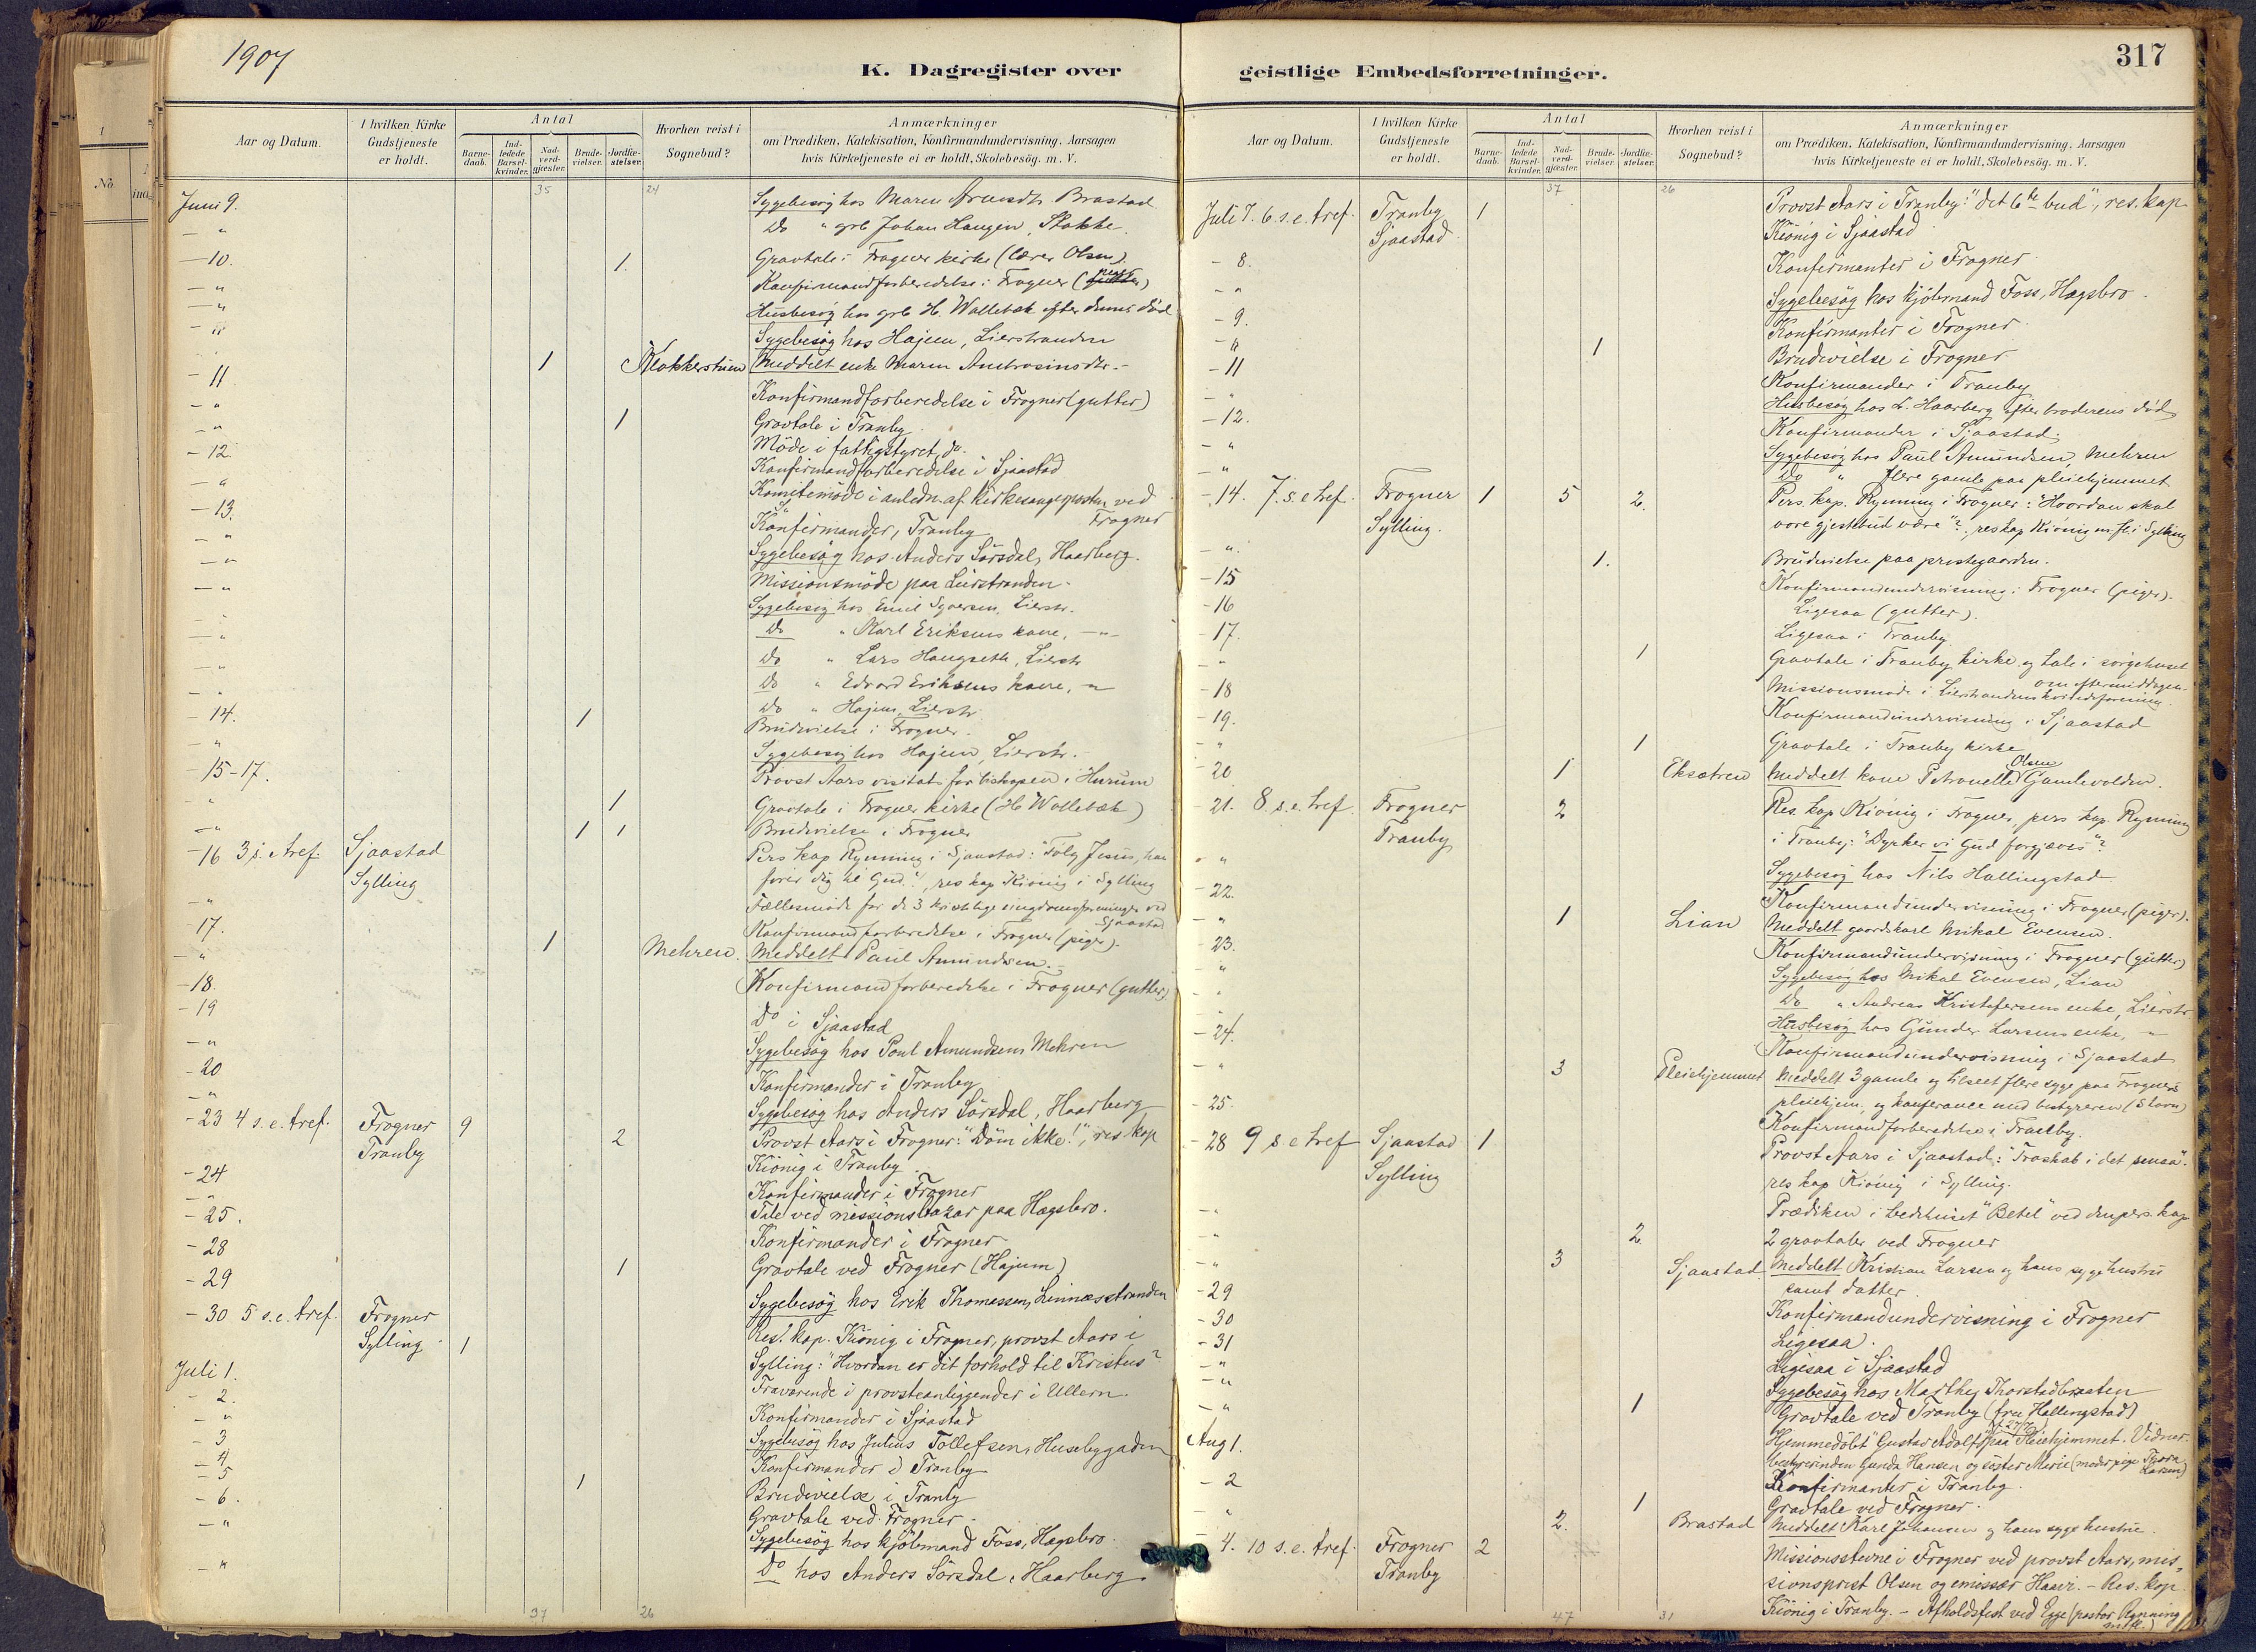 1907
K. Dagregister over
geistlige Embedsforretninger.
317
Aar og Datum.
I hvilken Kirke Gudstjeneste er holdt.
Antal
Barne-daab.
Ind-ledede Barsel-kvinder.
Nad-verd-gjæster.
Brude-vielser.
Jordfæ-stelser.
Hvorhen reist i Sognebud?
Anmærkninger
om Prædiken, Katekisation, Konfirmandundervisning, Aarsagen
hvis Kirketjeneste ei er holdt, Skolebesög. m. V.
35 24
Juni 9. Sygebesög hos Maren Brastad
- " Do " grb Johan Haugen, Stokke.
- 10. 1. Gravtale i Frogner kirke (lærer Olsen)
- " Konfirmandforberedelse i Frogner (piger)
- " Husbesög hos grb H. Wallebæk efter död
- " Sygebesög hos Hajem, Lierstranden
1 Klokkerstuen Meddelt enke Maren Ambrosinsdtr.
- 11. Konfirmandforberedelse i Frogner (gutter)
- " 1 Gravtale i Tranby
- " Möde i fattigstyret, do.
- 12. Konfirmandforberedelse i Sjaastad
- " Komitemöde i anledn. af kirkesangerposten ved Frogner
- 13. Konfirmander, Tranby
- " Sygebesög hos Anders Sörsdal, Haarberg.
- " Missionsmöde paa Lierstranden.
- " Sygebesög hos Emil Syversen, Lierstr.
- " Do " Karl Eriksens kone, - " -
- " Do " Lars Haugseth, Lierstr
- " Do " Edvard Eriksens kone, "
- " Do " Hajem, Lierstr
- 14. 1 Brudevielse i Frogner.
- " Sygebesög hos Hajem, Lierstr.
- 15-17. Provst Aars visitats for biskopen i Hurum
- " 1 Gravtale i Frogner kirke (H. Wallebæk)
- " 1 1 Brudevielse i Frogner
- 16 3 s. e. tref. Sjaastad Pers kap Rynning i Sjaastad: "Fölg Jesus, han
Sylling förer dig til Gud"!, res kap Kiönig i Sylling
- " Fællesmöde for de 3 kristelige ungdomsforeninger ved Sjaastad
- 17. Konfirmandforberedelse i Frogner (piger).
- " 1 Mehren. Meddelt Paul Amundsen.
- 18. Konfirmandforberedelse i Frogner (gutter)
- 19 Do i Sjaastad
- " Sygebesög hos Poul Amundsen, Mehren
- 20 Konfirmander i Tranby
- " Sygebesög hos Anders Sörsdal, Haarberg
- 23 4 s.e. tref. Frogner 9 2 Provst Aars i Frogner: "Döm ikke!", res. kap
Tranby Kiönig i Tranby.
- 24 Konfirmander i Frogner
- " Tale ved missionsbazar paa Hægsbro.
- 25. Konfirmander i Frogner
- 28 1 Gravtale ved Frogner (Hajum)
- 29 Sygebesög hos Erik Thomassen, Linnæsstranden
- 30 5 s.e. tref. Frogner Res. kap. Kiönig i Frogner, provst Aars i
Sylling 1 Sylling: "Hvordan er dit forhold til Kristus"?
Juli 1. Fraværende i provsteanliggender i Ullern.
- 2. Konfirmander i Sjaastad
- " Sygebesög hos Julius Tollefsen, Husebygaden
- 3 Konfirmander i Tranby
- 4
- 5 1 Brudevielse i Tranby
- 6. Gravtale ved Frogner
- " Sygebesög hos kjöbmand Foss, Hægsbro.
- " Do hos Anders Sörsdal, Haarberg.
37 26
Aar og Datum.
I hvilken Kirke Gudstjeneste er holdt.
Antal
Barne-daab.
Ind-ledede Barsel-kvinder.
Nad-verd-gjæster.
Brude-vielser.
Jordfæ-stelser.
Hvorhen reist i Sognebud?
Anmærkninger
om Prædiken, Katekisation, Konfirmandundervisning, Aarsagen
hvis Kirketjeneste ei er holdt, Skolebesög. m. V.
37 26
Juli 7. 6. s.e. tref. Tranby 1 Provst Aars i Tranby: "det 6te bud", res. kap
Sjaastad Kiönig i Sjaastad
- 8. Konfirmanter i Frogner
- " Sygebesög hos kjöbmand Foss, Hægsbro.
- 9. Konfirmanter i Frogner
- " 1 Brudevielse i Frogner
- 11 Konfirmander i Tranby
- " Husbesög hos L. Haarberg efter broderens död
- 12. Konfirmander i Sjaastad
- " Sygebesög hos Paul Amundsen, Mehren
- " Do " flere gamle paa pleiehjemmet
- 14. 7. s.e. tref. Frogner 1 5 2. Pers. kap. Rynning i Frogner: "Hvordan skal
Sylling. vore gjestebud være"?, res kap Kiönig i Sylling
- ". 1. Brudevielse paa prestegaarden.
- 15 Konfirmandundervisning i Frogner (piger).
- 16 Ligesaa (gutter).
- 17. Ligesaa i Tranby
- " 1 Gravtale i Tranby kirke og tale i sörgehuset om eftermiddagen.
- 18 Missionsmöde i Lierstrandens
- 19. Konfirmandundervisning i Sjaastad
- " 1 Gravtale i Tranby kirke
- 20 1 Eksætren Meddelt kone Petronelle Olsen Gamlevolden.
- 21. 8. s.e. tref. Frogner 2 Res. kap Kiönig i Frogner, pers kap. Rynning
Tranby i Tranby: "Dyrker vi Gud forgjæves"?
- " Sygebesög hos Nils Hallingstad.
- 22. Konfirmandundervisning i Frogner (piger).
- " 1 Lian Meddelt gaardskarl Mikal Evensen.
- 23. Konfirmandundervisning i Frogner (gutter)
- " Sygebesög hos Mikal Evensen, Lian
- " Do " Andreas Kristofersens enke, Lierstr
- " Husbesög hos Gunder Larsens enke, "
- 24. Konfirmandundervisning i Sjaastad
- " 3 Pleiehjemmet Meddelt 3 gamle og tilseet flere syge paa Frogners
pleiehjem. og konferance med bestyreren (Storm)
- 25. Konfirmandforberedelse i Tranby.
- 28 9 s e tref Sjaastad 1 Provst Aars i Sjaastad: "Troskab i det smaa".
Sylling res kap Kiönig i Sylling.
- " Prædiken i bedehuset "Betel" ved den pers. kap
- " 2. 2 gravtaler ved Frogner
- " 3 Sjaastad Meddelt Kristian Larsen og hans syge hustru
samt datter.
- 29 Konfirmandundervisning i Frogner
- 30 Ligesaa.
- 31 Ligesaa i Sjaastad
- " Sygebesög hos Marthe Thorstadbraaten
- " 1 Gravtale ved Tranby (fru Hallingstad)
Aug 1. Hjemmedöbt "Gustav Adolf" paa Pleiehjemmet. Vidner.
bestyrerinden Gunda Hansen og söster Marie (moder pige Thora Larsen)
- 2 Konfirmanter i Tranby.
- " 1 Gravtale ved Frogner.
- " 2. Brastad Meddelt Karl Johansen og hans syge hustru.
- 4. 10 s.e. tref. Frogner 2 Missionsstevne i Frogner ved provst Aars, mis-
Tranby sionsprest Olsen og emissær Haave. - Res. kap.
Kiönig i Tranby. - Afholdsfest ved Egge (pastor Rynning
47 31